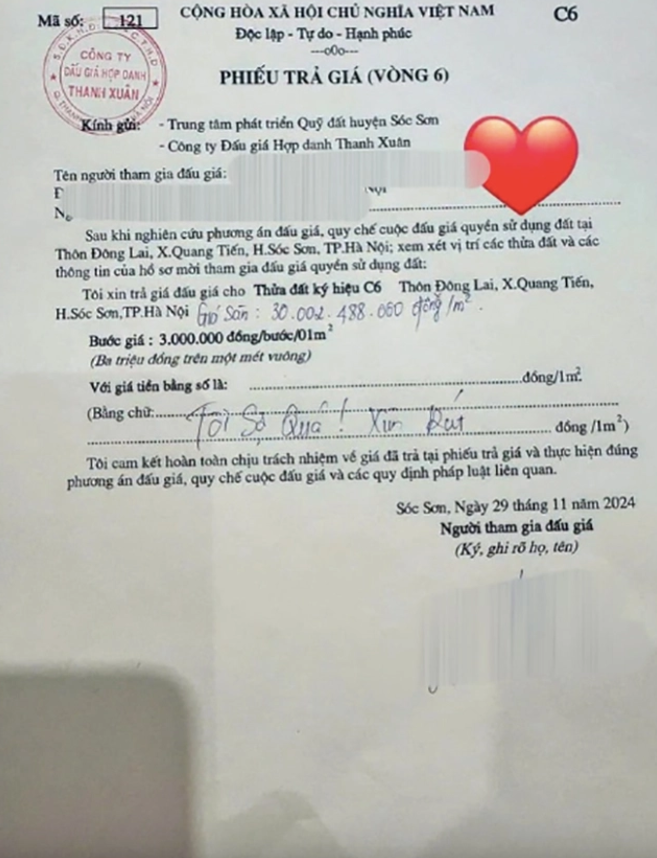 Mã số: 121
CỘNG HÒA XÃ HỘI CHỦ NGHĨA VIỆT NAM
C6
Độc lập - Tự do - Hạnh phúc
---o0o---
CÔNG TY
ĐẤU GIÁ HỢP DANH
THANH XUÂN
PHIẾU TRẢ GIÁ (VÒNG 6)
Kính gửi: - Trung tâm phát triển Quỹ đất huyện Sóc Sơn
- Công ty Đấu giá Hợp danh Thanh Xuân
Tên người tham gia đấu giá:
Sau khi nghiên cứu phương án đấu giá, quy chế cuộc đấu giá quyền sử dụng đất tại
Thôn Đông Lai, X.Quang Tiến, H.Sóc Sơn, TP.Hà Nội; xem xét vị trí các thửa đất và các
thông tin của hồ sơ mời tham gia đấu giá quyền sử dụng đất:
Tôi xin trả giá đấu giá cho Thửa đất ký hiệu C6 Thôn Đông Lai, X.Quang Tiến,
H.Sóc Sơn,TP.Hà Nội Giá Sàn : 30.002.488.000 đồng/m².
Bước giá : 3.000.000 đồng/bước/01m²
(Ba triệu đồng trên một mét vuông)
Với giá tiền bằng số là: ........................đồng/1m².
(Bằng chữ:........................
Tôi Sợ Quá! Xin Rút
........................ đồng /1m²)
Tôi cam kết hoàn toàn chịu trách nhiệm về giá đã trả tại phiếu trả giá và thực hiện đúng
phương án đấu giá, quy chế cuộc đấu giá và các quy định pháp luật liên quan.
Sóc Sơn, Ngày 29 tháng 11 năm 2024
Người tham gia đấu giá
(Ký, ghi rõ họ, tên)